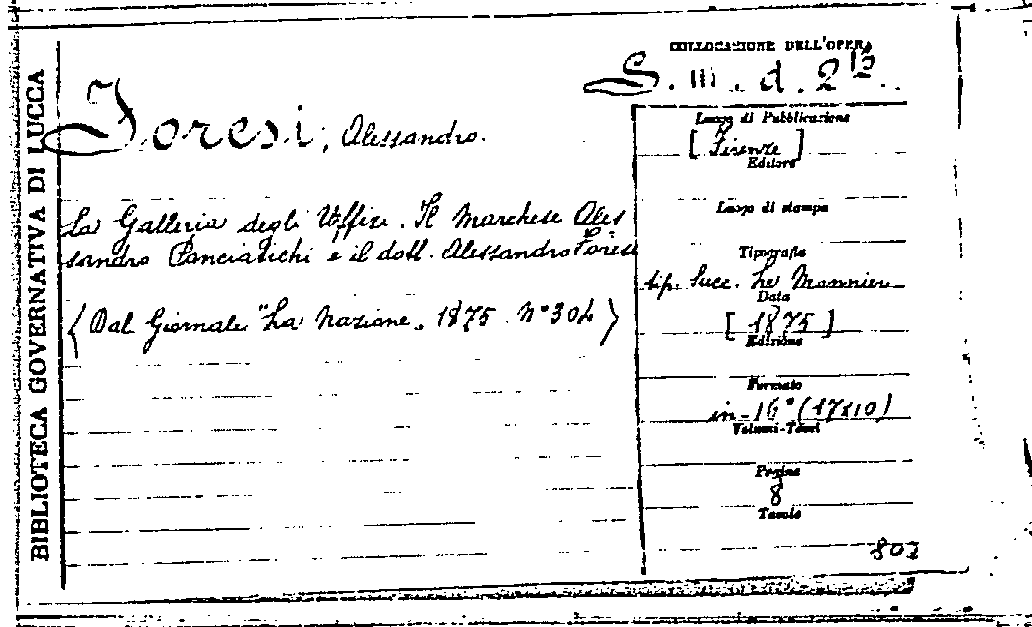 BIBLIOTECA GOVERNATIVA DI LUCCA
COLLOCAZIONE DELL'OPERA
S. III. d. 2
Foresi, Alessandro.
La Galleria degli Uffizi. Il Marchese Ales
sandro Panciatichi e il dott. Alessandro Foresi
(Dal Giornale "La Nazione" 1875 N° 304)
Luogo di Pubblicazione
[Firenze]
Editore
Luogo di stampa
Tipografia
tip. Succ. Le Monnier
Data
[1875]
Edizione
Formato
in-16° (17x10)
Volumi-Tomi
Pagine
8
Tavole